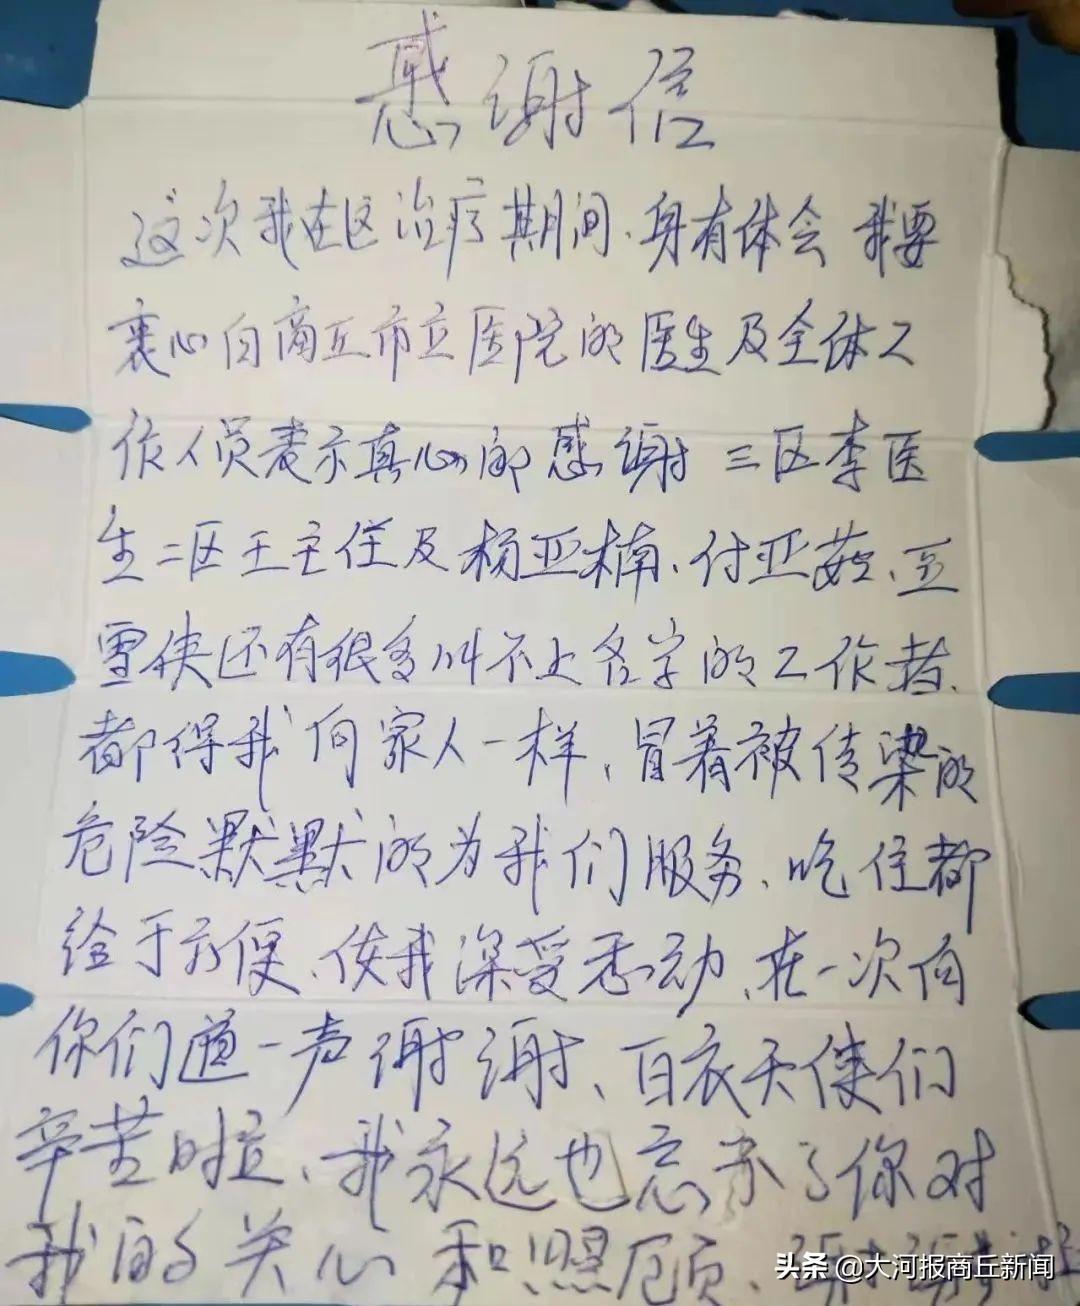 感谢信
这次我在区治疗期间.身有体会 我要
衷心向商丘市立医院的医生及全体工
作人员表示真心的感谢 三区李医
生二区王主任及杨亚楠、付亚茹、
雪侠还有很多叫不上名字的工作者、
都得我向家人一样、冒着被传染的
危险默默的为我们服务、吃住都
给于方便、使我深受感动、在一次向
你们道一声谢谢、白衣天使们
辛苦啦、我永远也忘不了你对
我的关心和照顾、谢谢
头条 @大河报商丘新闻